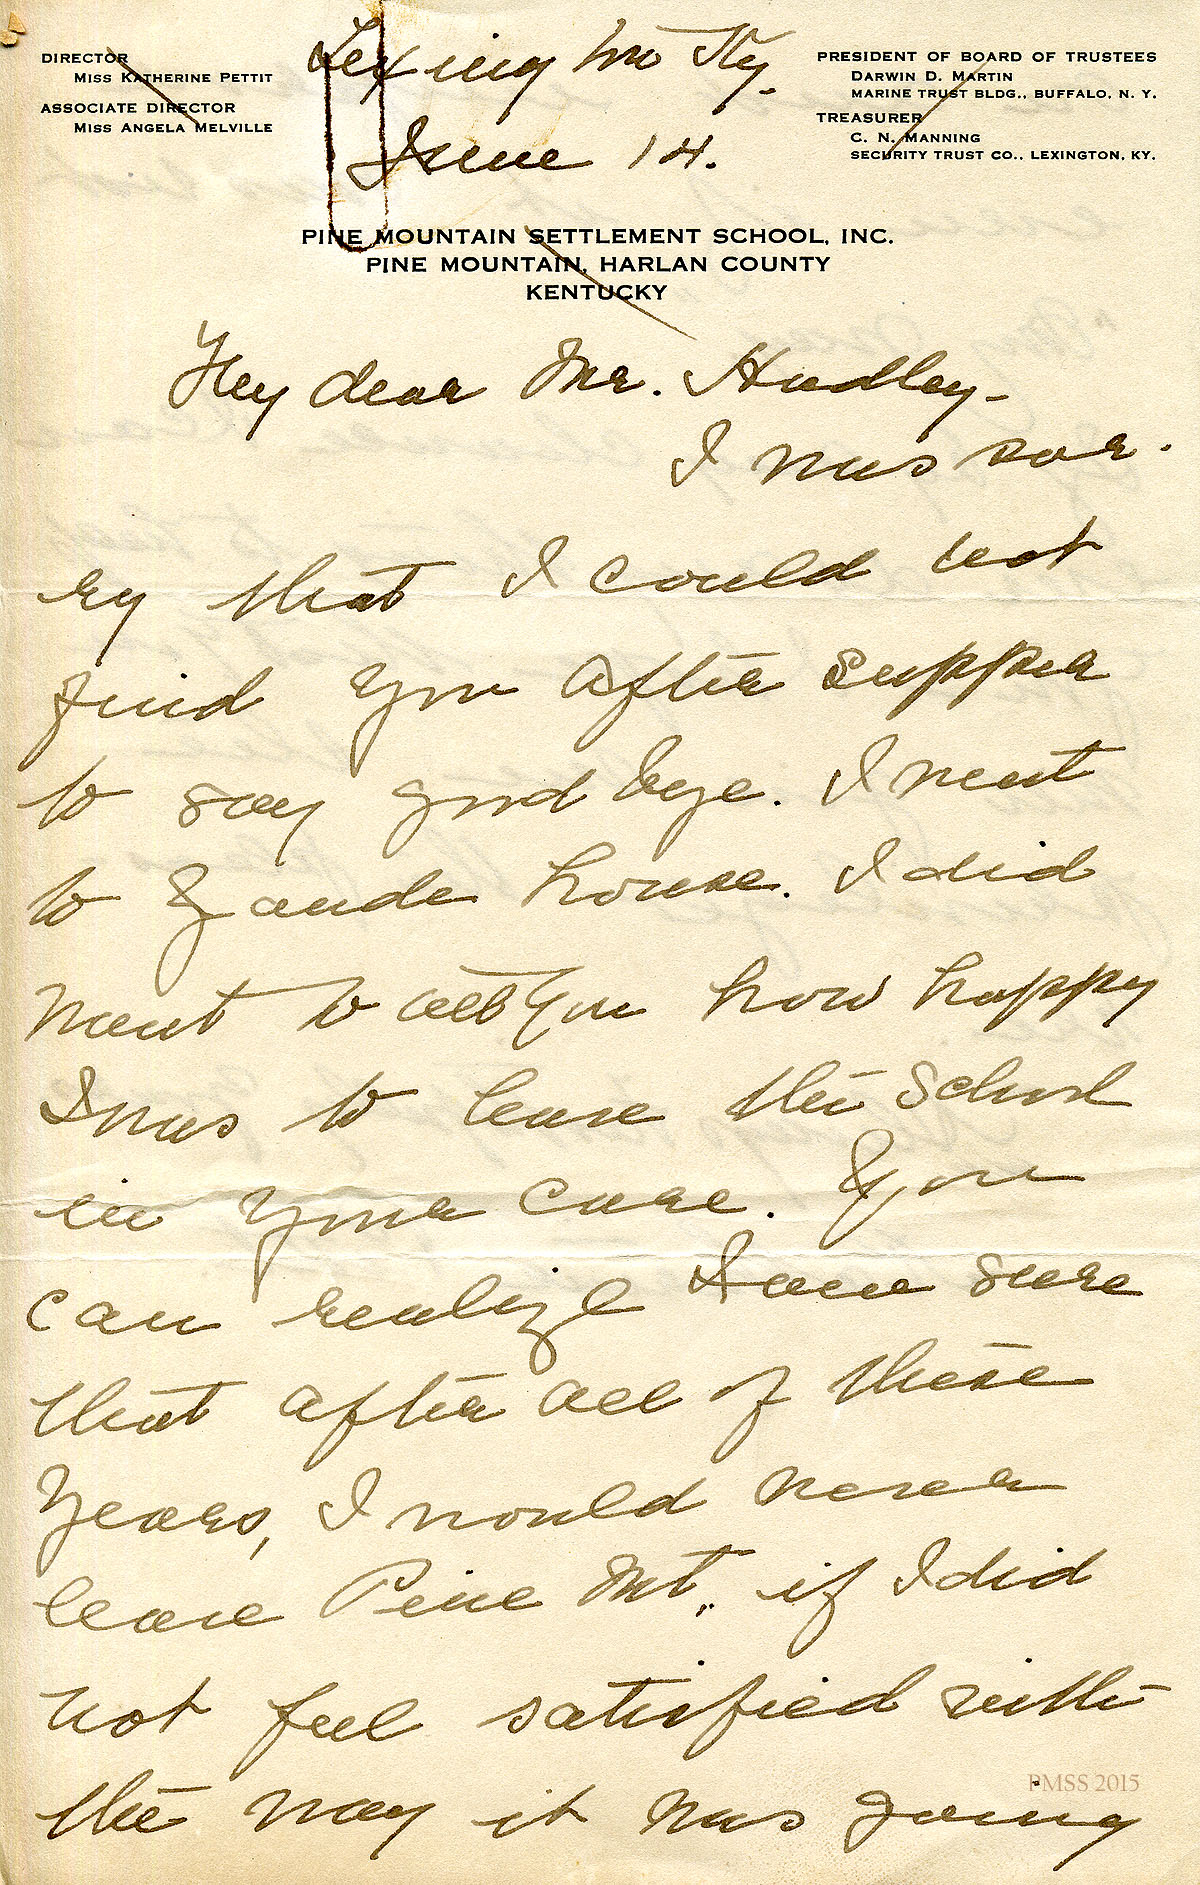 DIRECTOR
MISS KATHERINE PETTIT
ASSOCIATE DIRECTOR
MISS ANGELA MELVILLE
PRESIDENT OF BOARD OF TRUSTEES
DARWIN D. MARTIN
MARINE TRUST BLDG., BUFFALO, N. Y.
TREASURER
C. N. MANNING
SECURITY TRUST CO., LEXINGTON, KY.
Lexington Ky.
June 14.
PINE MOUNTAIN SETTLEMENT SCHOOL, INC.
PINE MOUNTAIN, HARLAN COUNTY
KENTUCKY
My dear Mr. Hadley-
I was sor-
ry that I could not
find you after supper
to say good bye. I went
to Zande house. I did
want to tell you how happy
I was to leave the School
in your care. You
can realize I am sure
that after all of these
years, I would never
leave Pine Mt., if I did
not feel satisfied with
the way it was going
PMSS 2015